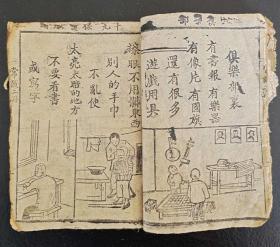 俱樂部裏
有書報有樂器
有像片有國旗
還有很多
遊戲用具
不用髒東西
別人的手巾
不亂使
太亮太暗的地方
不要看書
或寫字
常識